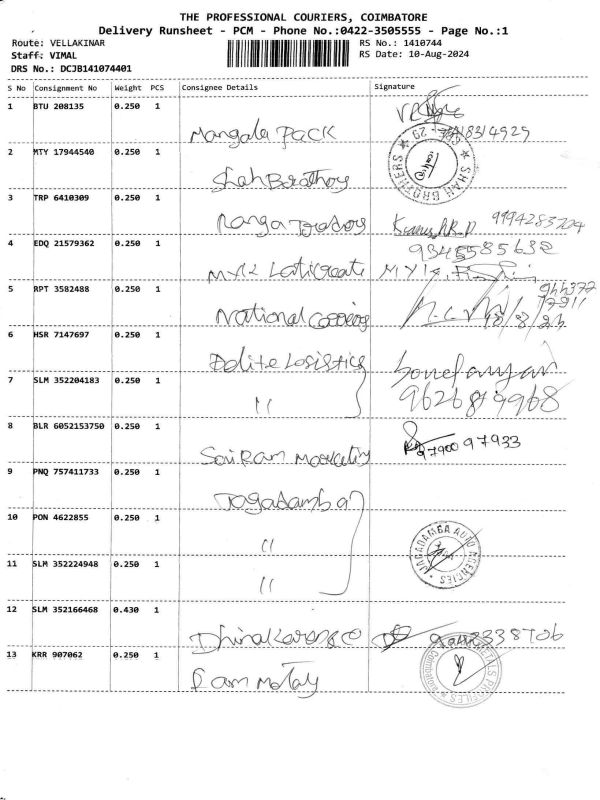 THE PROFESSIONAL COURIERS, COIMBATORE
Delivery Runsheet - PCM - Phone No.:0422-3505555 - Page No.:1
Route: VELLAKINAR RS No.: 1410744
Staff: VIMAL RS Date: 10-Aug-2024
DRS No.: DCJB141074401
S No Consignment No Weight PCS Consignee Details Signature
1 BTU 208135 0.250 1
Mangala Pack
2 MTY 17944540 0.250 1
SHAH BROTHERS
Shah Brothers
3 TRP 6410309 0.250 1
Ranga Traders 9994283704
4 EDQ 21579362 0.250 1
9345585632
MYK Laticrete MYK
5 RPT 3582488 0.250 1
National
6 HSR 7147697 0.250 1
Delite Logistics
7 SLM 352204183 0.250 1
" 9626879968
8 BLR 6052153750 0.250 1
97900 97933
Sai Ram Marketing
9 PNQ 757411733 0.250 1
Jagadamba
10 PON 4622855 0.250 1
" JAGADAMBA AUTO AGENCIES
11 SLM 352224948 0.250 1
"
12 SLM 352166468 0.430 1
Dhinakaran & Co
13 KRR 907062 0.250 1
Ram Metals